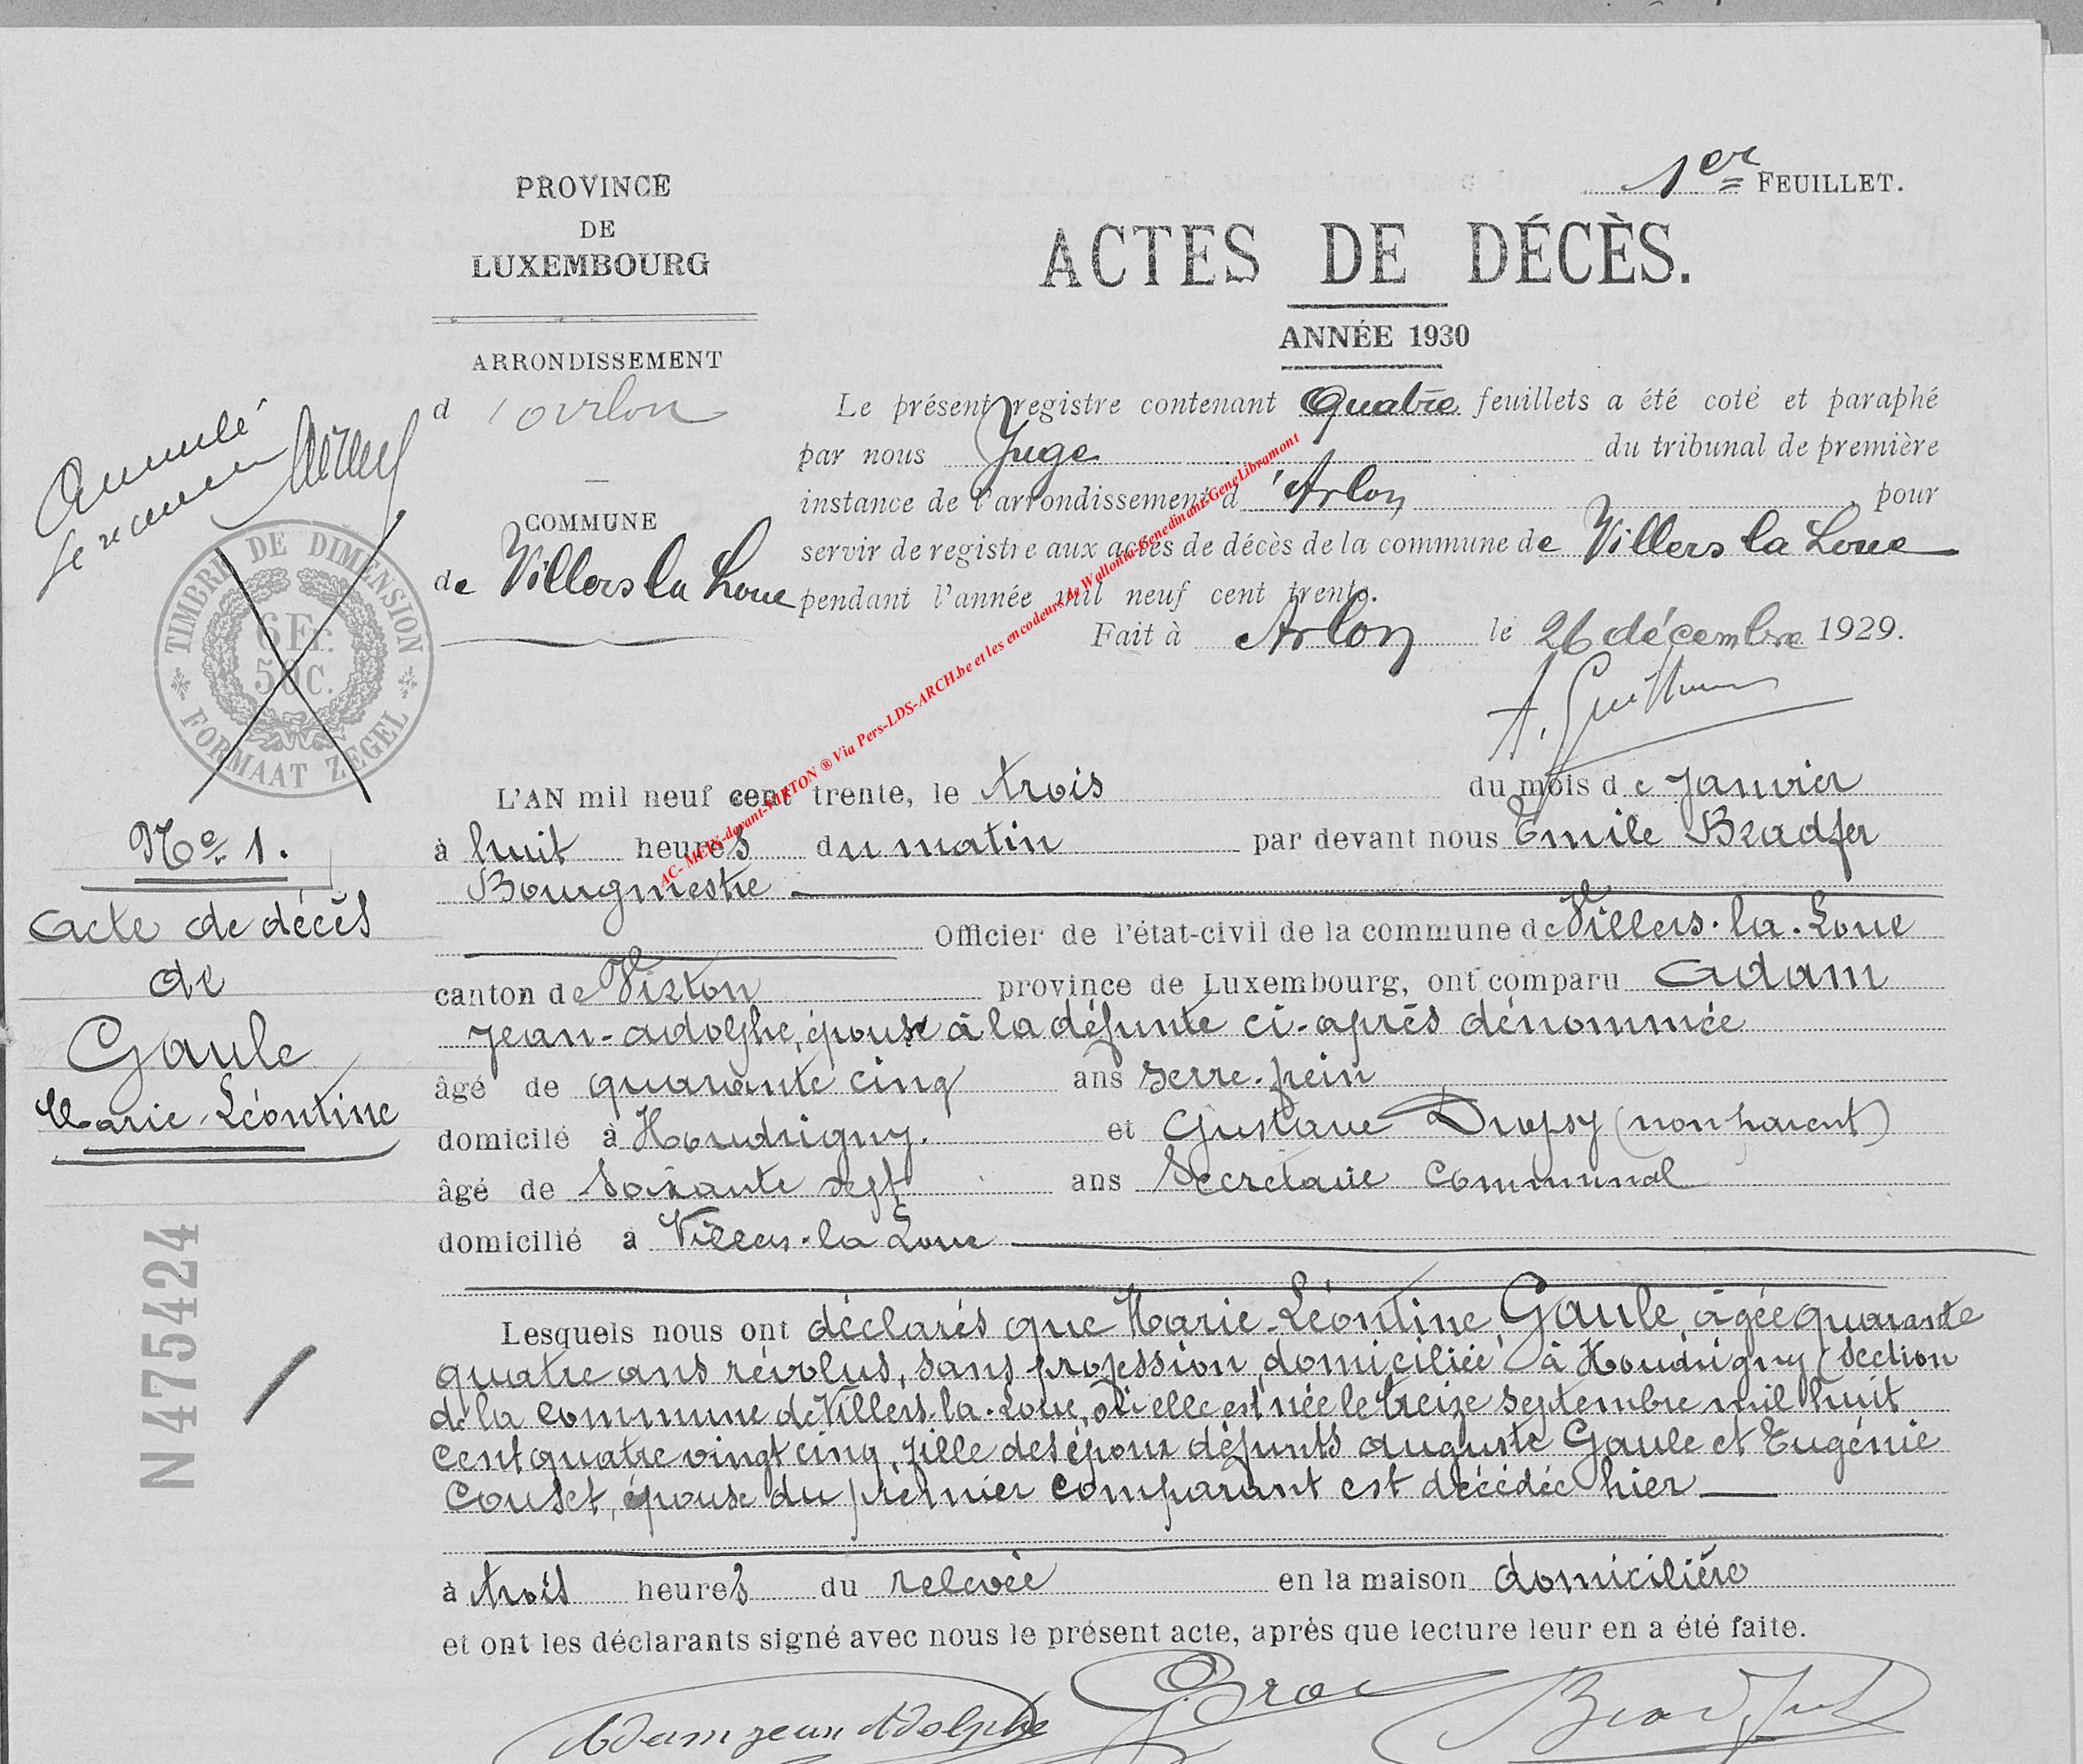 1er FEUILLET.
PROVINCE
DE
LUXEMBOURG
ARRONDISSEMENT
d'arlon
COMMUNE
de Villers la Loue
ACTES DE DÉCÈS.
ANNÉE 1930
Le présent registre contenant Quatre feuillets a été coté et paraphé
par nous Juge du tribunal de première
instance de l'arrondissement d'Arlon, pour
servir de registre aux actes de décès de la commune de Villers la Loue
pendant l'année mil neuf cent trente.
Fait à Arlon le 26 décembre 1929.
Annulé
TIMBRE DE DIMENSION
6 Fr.
50 C.
FORMAAT ZEGEL
AC- MEIX-devant-VIRTON ® Via Pers-LDS-ARCH.be et les encodeurs de Wallonia-Genedinant-GeneLibramont
No. 1.
Acte de décès
de
Gaule
Marie-Léontine
N 475424
L'AN mil neuf cent trente, le trois du mois de Janvier
à huit heures du matin par devant nous Emile Bradfer
Bourgmestre
Officier de l'état-civil de la commune de Villers-la-Loue
canton de Virton province de Luxembourg, ont comparu Adam
Jean-Adolphe, époux à la défunte ci-après dénommée
âgé de quarante cinq ans serre-frein
domicilé à Houdrigny. et Gustave Dropsy (non parent)
âgé de soixante sept ans Secrétaire Communal
domicilié à Villers-la-Loue
Lesquels nous ont déclarés que Marie-Léontine Gaule, âgée quarante
quatre ans révolus, sans profession, domiciliée à Houdrigny (section
de la commune de Villers-la-Loue, où elle est née le treize septembre mil huit
cent quatre vingt cinq, fille des époux défunts Auguste Gaule et Eugénie
Couset, épouse du premier comparant est décédée hier
à trois heures du relevée en la maison domicilière
et ont les déclarants signé avec nous le présent acte, après que lecture leur en a été faite.
Adam Jean Adolphe